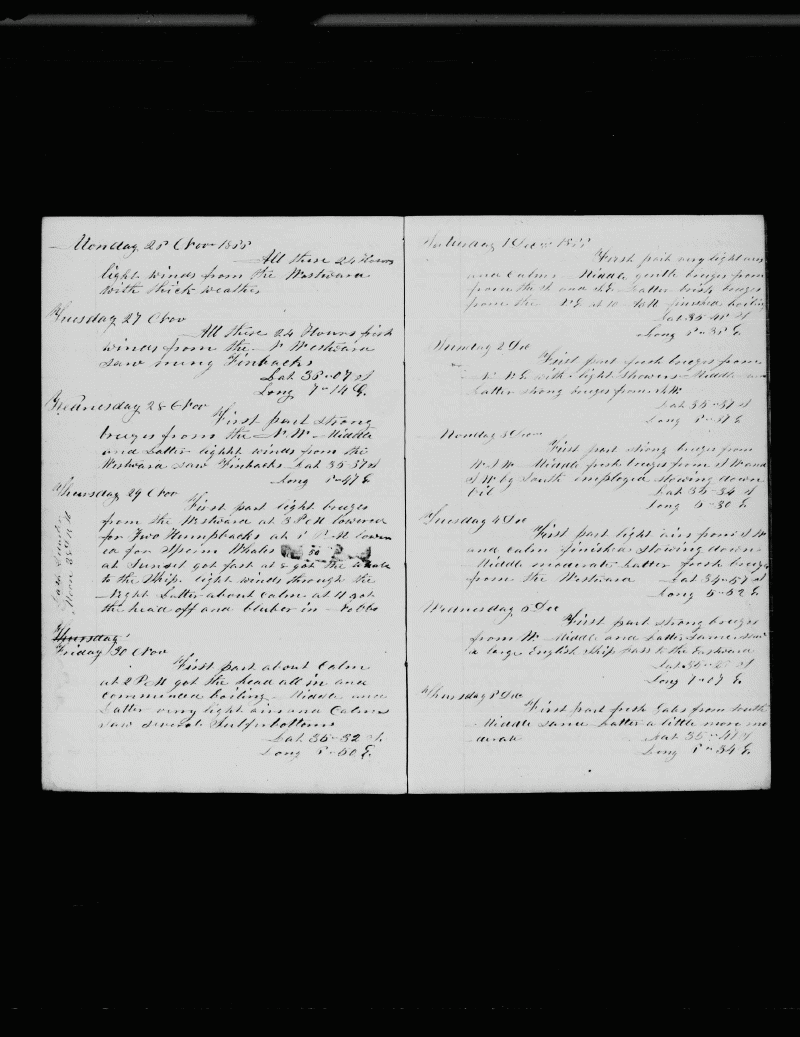 Monday 26 Nov 1855
All these 24 Hours
light winds from the Westward
with thick weather
Tuesday 27 Nov
All these 24 Hours fresh
winds from the N Westward
saw many Finbacks
Lat 35-07 S
Long 7-14 E.
Wednesday 28 Nov
First part strong
breezes from the N.W. Middle
and Latter light winds from the
Westward saw Finbacks Lat 35-37 S
Long -47 E
Thursday 29 Nov
First part light breezes
from the Westward at 3 PM lowered
for Two Humpbacks at PM lower
ed for Sperm Whales
at Sunset got fast at 8 got the whale
to the Ship. light winds through the
Night Latter about Calm at 11 got
the head off and bluber in
Thursday
Friday 30 Nov
First part about Calm
at 2 PM got the head all in and
commenced boiling Middle and
Latter very light airs and Calms
saw several Sulfurbottoms
Lat 35-32 S.
Long -50 E.
Saturday 1 Dec 1855
First part very light airs
and Calms Middle gentle breezes from
from the and Latter brisk breezes
from the N.E. at 10 finished boiling
Lat 35-41 S
Long -31 E.
Sunday 2 Dec
First part fresh breezes from
N.E. with light showers Middle and
Latter strong breezes from
Lat 35-37 S
Long -17 E
Monday 3 Dec
First part strong breezes from
W.S.W. Middle fresh breezes from S W and
S W by South employed stowing down
Oil Lat 35-34 S
Long 5-30 E.
Tuesday 4 Dec
First part light airs from S W
and calm finished stowing down
Middle moderate Latter fresh breezes
from the Westward Lat 34-57 S
Long 5-52 E.
Wednesday 5 Dec
First part strong breezes
from W. Middle and Latter same saw
a large English Ship pass to the Eastward
Long 7-07 E.
Thursday 6 Dec
First part fresh Gales from South
Middle same Latter a little more mo
derate Lat 35-41 S
Long -34 E.